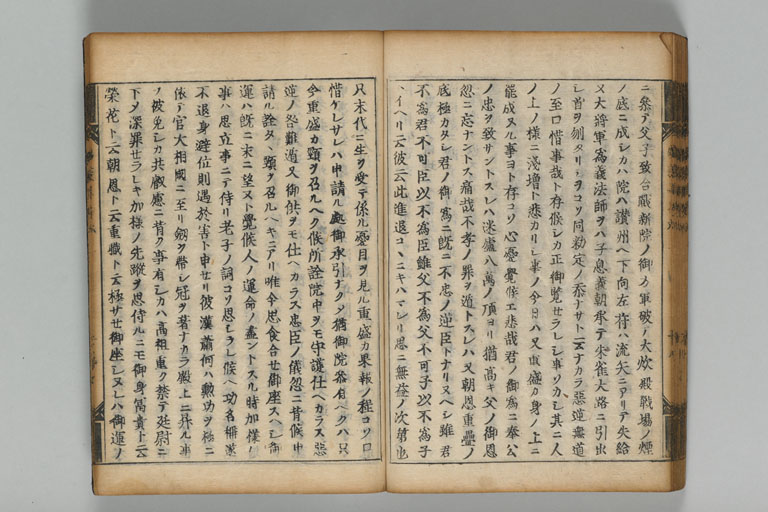 ニ参テ父子致合戰新院ノ御方軍破ノ大炊殿戰場ノ煙
ノ底ニ成シカハ院ハ讃州ヘ下向左府ハ流矢ニアリテ失給
ヌ大將軍爲義法師ヲハ子息義朝承テ朱雀大路ニ引出
シ首ヲ刎タリシヲコソ同勅定ノ忝ナサト云ナカラ惡逆無道
ノ至口惜事哉ト存候シカ正御覽セラレシ事ソカシ其ニ人
ノ上ノ様ニ淺増ト悲カリシ事ノ今日ハ又重盛カ身ノ上ニ
罷成ヌル事ヨト存コソ心憂覺候エ悲哉君ノ御爲ニ奉公
ノ忠ヲ致サントスレハ迷盧八萬ノ頂ヨリ猶高キ父ノ御恩
忽ニ忘ナントス痛哉不孝ノ罪ヲ遁トスレハ又朝恩重疊ノ
底極カタシ君ノ御爲ニ既ニ不忠ノ逆臣トナリヌヘシ雖君
不爲君不可臣以不爲臣雖父不爲父不可子以不爲子
トイヘリ云彼云此進退コヽニキハマレリ思ニ無益ノ次第也
只末代ニ生ヲ受テ係ル憂目ヲ見ル重盛カ果報ノ程コソ口
惜ケレサレハ申請ル處御承引ナクシテ猶御院參有ヘクハ只
今重盛カ頸ヲ召ルヘク候所詮院中ヲモ守護仕ヘカラス惡
逆ノ咎難遁又御供ヲモ仕ヘカラス忠臣ノ儀忽ニ背候申
請ル詮タヽ頸ヲ召ルヘキニアリ唯今思食合セ御座スヘシ御
運ハ既ニ末ニ望ヌト覺候人ノ運命ノ盡ントスル時加樣ノ
事ハ思立事ニテ侍リ老子ノ詞コソ思シラレ候ヘ功名稱遂
不退身避位則遇於害ト申セリ彼漢蕭何ハ勲功ヲ極ニ
依テ官大相國ニ至リ劔ヲ帶シ冠ヲ著ナカラ殿上ニ昇ル事
ノ彼免シカ共叡慮ニ背ク事有シカハ高祖重ク禁テ廷尉ニ
下ヲ深罪セラレキ加様ノ先蹤ヲ思侍ルニモ御身冨貴ト云
榮花ト云朝恩ト云重職ト云極サセ御座シヌレハ御運ノ